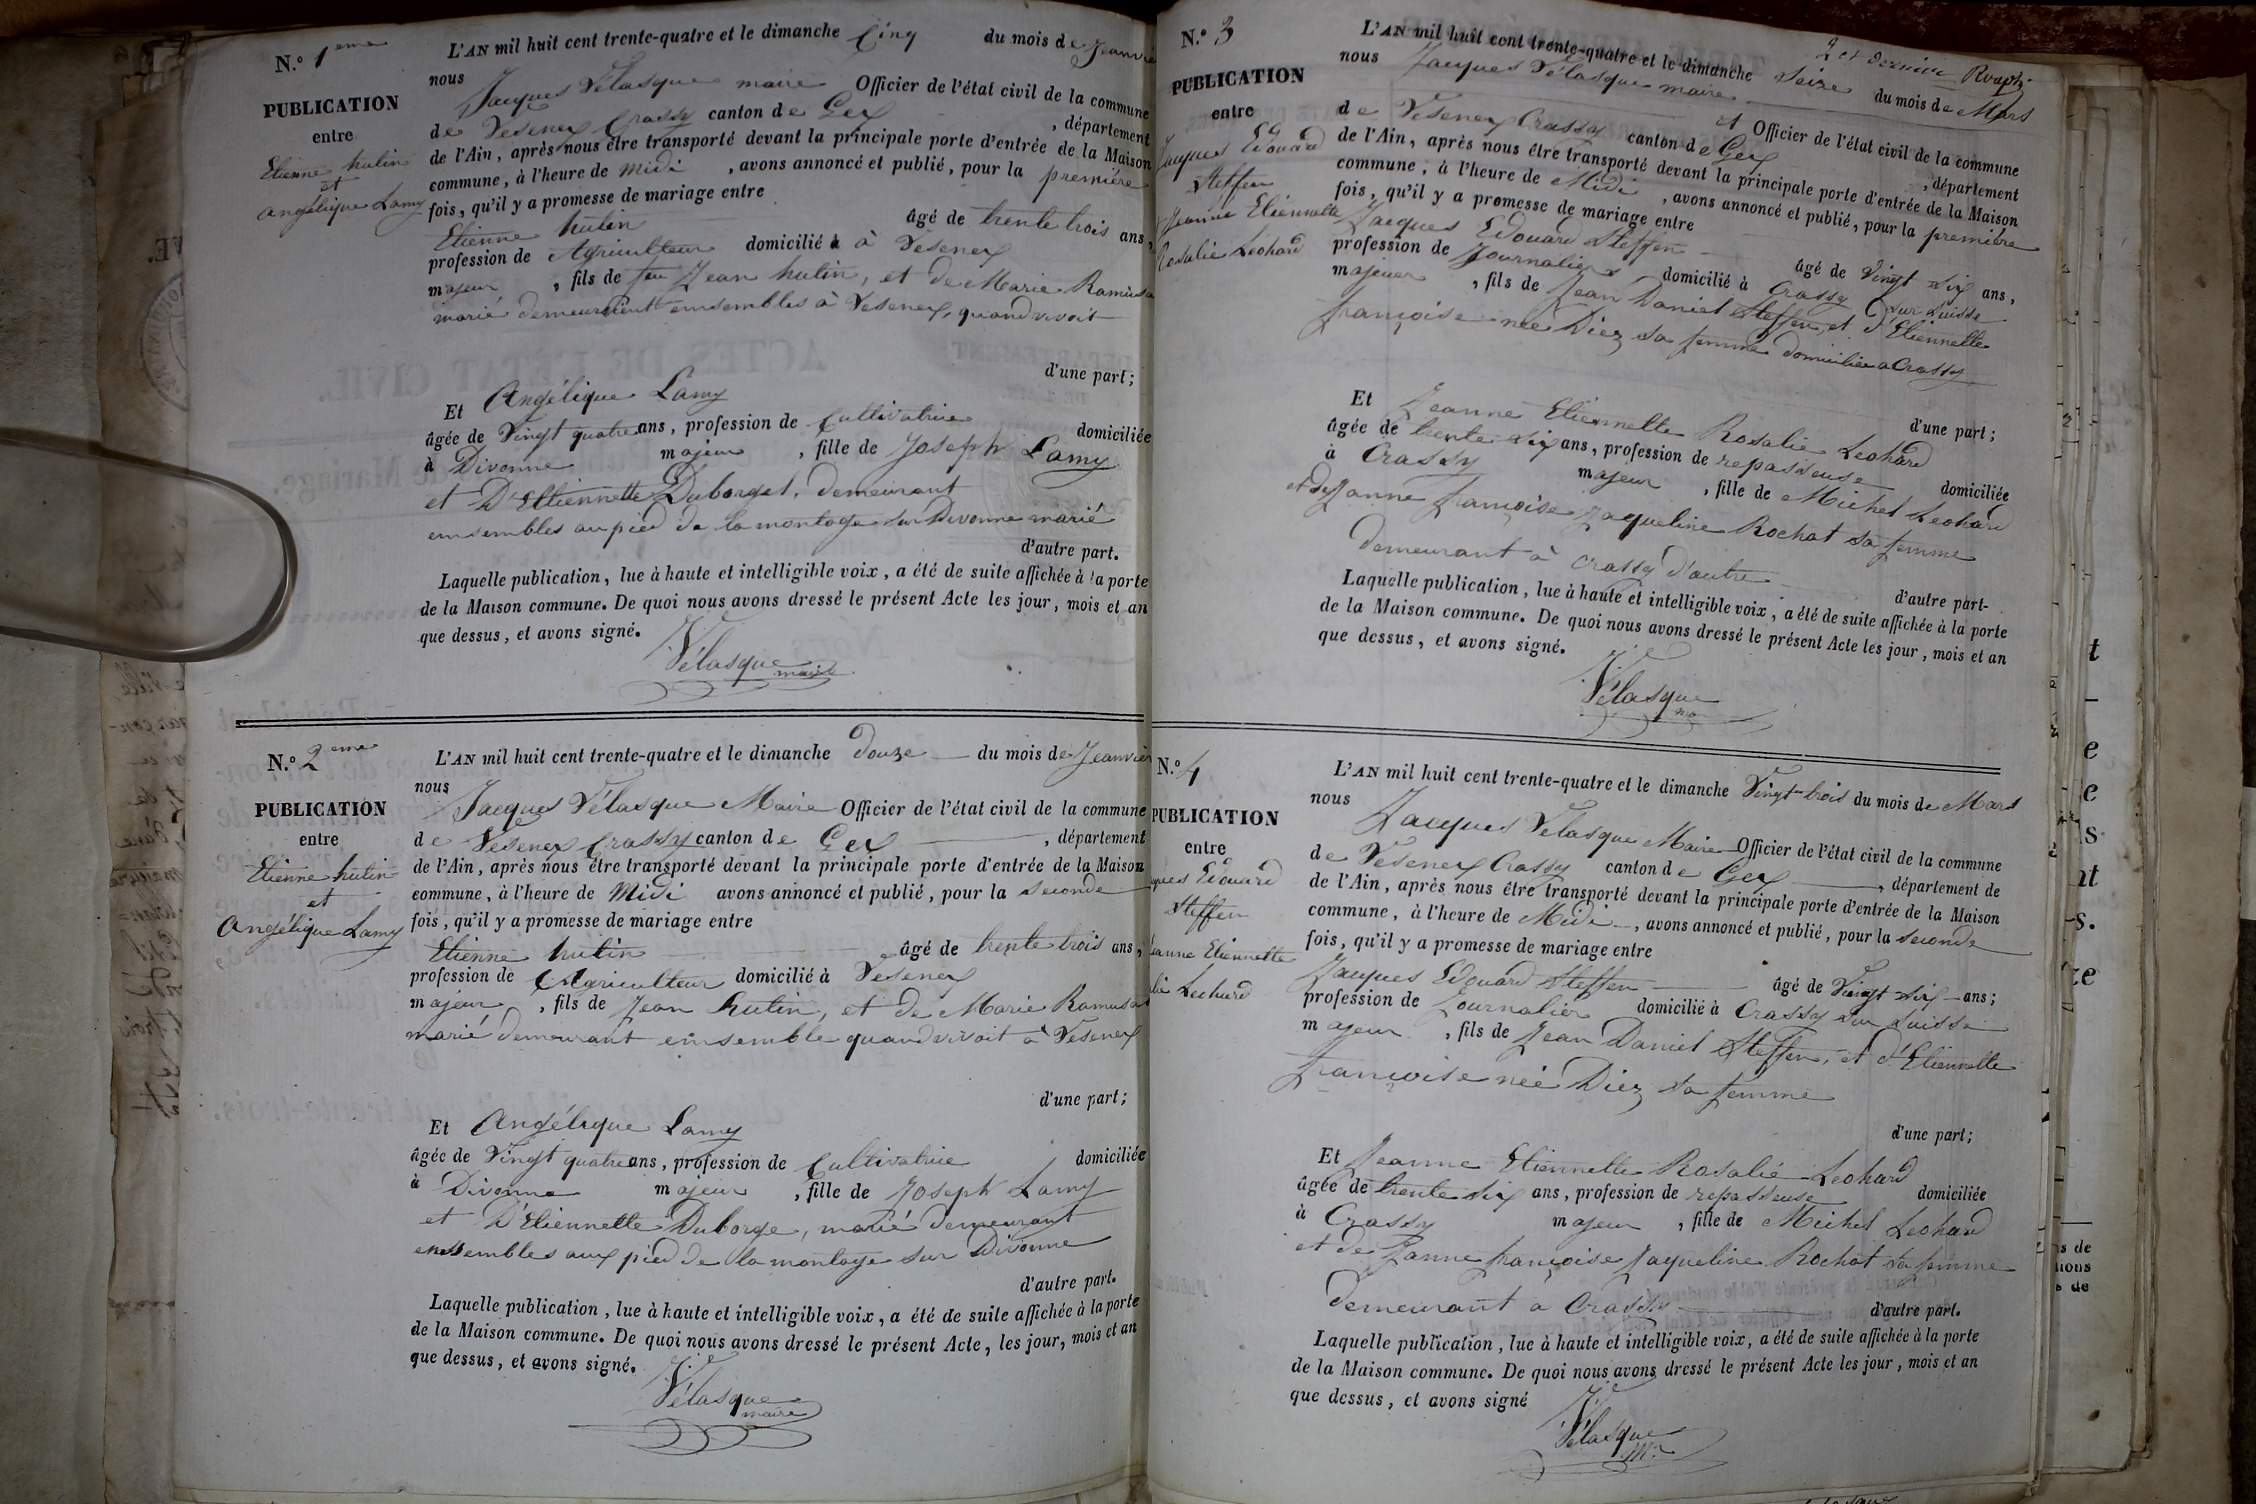 N.º 1eme
PUBLICATION
entre
Etienne hutin
et
Angélique Lamy
L'AN mil huit cent trente-quatre et le dimanche Cinq du mois de Jeanvier
nous Jacques Vélasque maire Officier de l'état civil de la commune
de Vesenex Crassy canton de Gex, département
de l'Ain, après nous être transporté devant la principale porte d'entrée de la Maison
commune, à l'heure de midi, avons annoncé et publié, pour la première
fois, qu'il y a promesse de mariage entre
Etienne hutin âgé de trente trois ans,
profession de Agriculteur domicilié à à Vésenex
majeur, fils de feu Jean hutin, et de Marie Ramusa
marié demeuroient ensembles à Vesenex, quand vivoit
d'une part;
Et Angélique Lamy
âgée de Vingt quatre ans, profession de Cultivatrice domiciliée
à Divonne majeur, fille de Joseph Lamy
et D'Etiennette Duborget, demeurant
ensembles au pied de la montage sur Divonne marié
d'autre part.
Laquelle publication, lue à haute et intelligible voix, a été de suite affichée à la porte
de la Maison commune. De quoi nous avons dressé le présent Acte les jour, mois et an
que dessus, et avons signé.
Vélasque
maire
N.º 2eme
PUBLICATION
entre
Etienne hutin
et
Angélique Lamy
L'AN mil huit cent trente-quatre et le dimanche douze du mois de Jeanvier
nous Jacques Vélasque Maire Officier de l'état civil de la commune
de Vesenex Crassy canton de Gex, département
de l'Ain, après nous être transporté devant la principale porte d'entrée de la Maison
commune, à l'heure de Midi avons annoncé et publié, pour la seconde
fois, qu'il y a promesse de mariage entre
Etienne hutin âgé de trente trois ans,
profession de Agriculteur domicilié à Vésenex
majeur, fils de Jean hutin, et de Marie Ramusa
marié demeurant einsemble quand vivoit à Vesenex
d'une part;
Et Angélique Lamy
âgée de Vingt quatre ans, profession de Cultivatrice domiciliée
à Divonne majeur, fille de Joseph Lamy
et D'Etiennette Duborge, marié demeurant
ensembles aux pied de la montage sur Divonne
d'autre part.
Laquelle publication, lue à haute et intelligible voix, a été de suite affichée à la porte
de la Maison commune. De quoi nous avons dressé le présent Acte, les jour, mois et an
que dessus, et avons signé.
Vélasque
maire
2 et dernier
N.º 3
PUBLICATION
entre
Jacques Edouard
Steffen
Jeanne Etiennette
Rosalie Leohard
L'AN mil huit cent trente-quatre et le dimanche Seize du mois de Mars
nous Jacques Vélasque maire et Officier de l'état civil de la commune
de Vesenex Crassy canton de Gex, département
de l'Ain, après nous être transporté devant la principale porte d'entrée de la Maison
commune, à l'heure de Midi, avons annoncé et publié, pour la première
fois, qu'il y a promesse de mariage entre
Jacques Edouard Steffen âgé de Vingt six ans,
profession de Journalier domicilié à Crassy sur Suisse
majeur, fils de Jean Daniel Steffen, et d'Etiennette
françoise née Diez sa femme domiciliée a Crassy
d'une part;
Et Jeanne Etiennette Rosalie Leohard
âgée de trente six ans, profession de repasseuse domiciliée
à Crassy majeur, fille de Michel Leohard
et de Janne françoise Jaqueline Rochat sa femme
demeurant à Crassy d'autre
d'autre part.
Laquelle publication, lue à haute et intelligible voix, a été de suite affichée à la porte
de la Maison commune. De quoi nous avons dressé le présent Acte les jour, mois et an
que dessus, et avons signé.
Vélasque
N.º 4
PUBLICATION
entre
ques Edouard
Steffen
Jeanne Etiennette
lie Leohard
L'AN mil huit cent trente-quatre et le dimanche Vingt-trois du mois de Mars
nous Jacques Vélasque Maire Officier de l'état civil de la commune
de Vesenex Crassy canton de Gex, département de
de l'Ain, après nous être transporté devant la principale porte d'entrée de la Maison
commune, à l'heure de Midi, avons annoncé et publié, pour la seconde
fois, qu'il y a promesse de mariage entre
Jacques Edouard Steffen âgé de Vingt six ans;
profession de Journalier domicilié à Crassy sur Suisse
majeur, fils de Jean Daniel Steffen, et d'Etiennette
françoise née Diez sa femme
d'une part;
Et Jeanne Etiennette Rosalie Leohard
âgée de trente six ans, profession de repasseuse domiciliée
à Crassy majeur, fille de Michel Leohard
et de Janne françoise Jaqueline Rochat sa femme
demeurant a Crassy
d'autre part.
Laquelle publication, lue à haute et intelligible voix, a été de suite affichée à la porte
de la Maison commune. De quoi nous avons dressé le présent Acte les jour, mois et an
que dessus, et avons signé
Vélasque